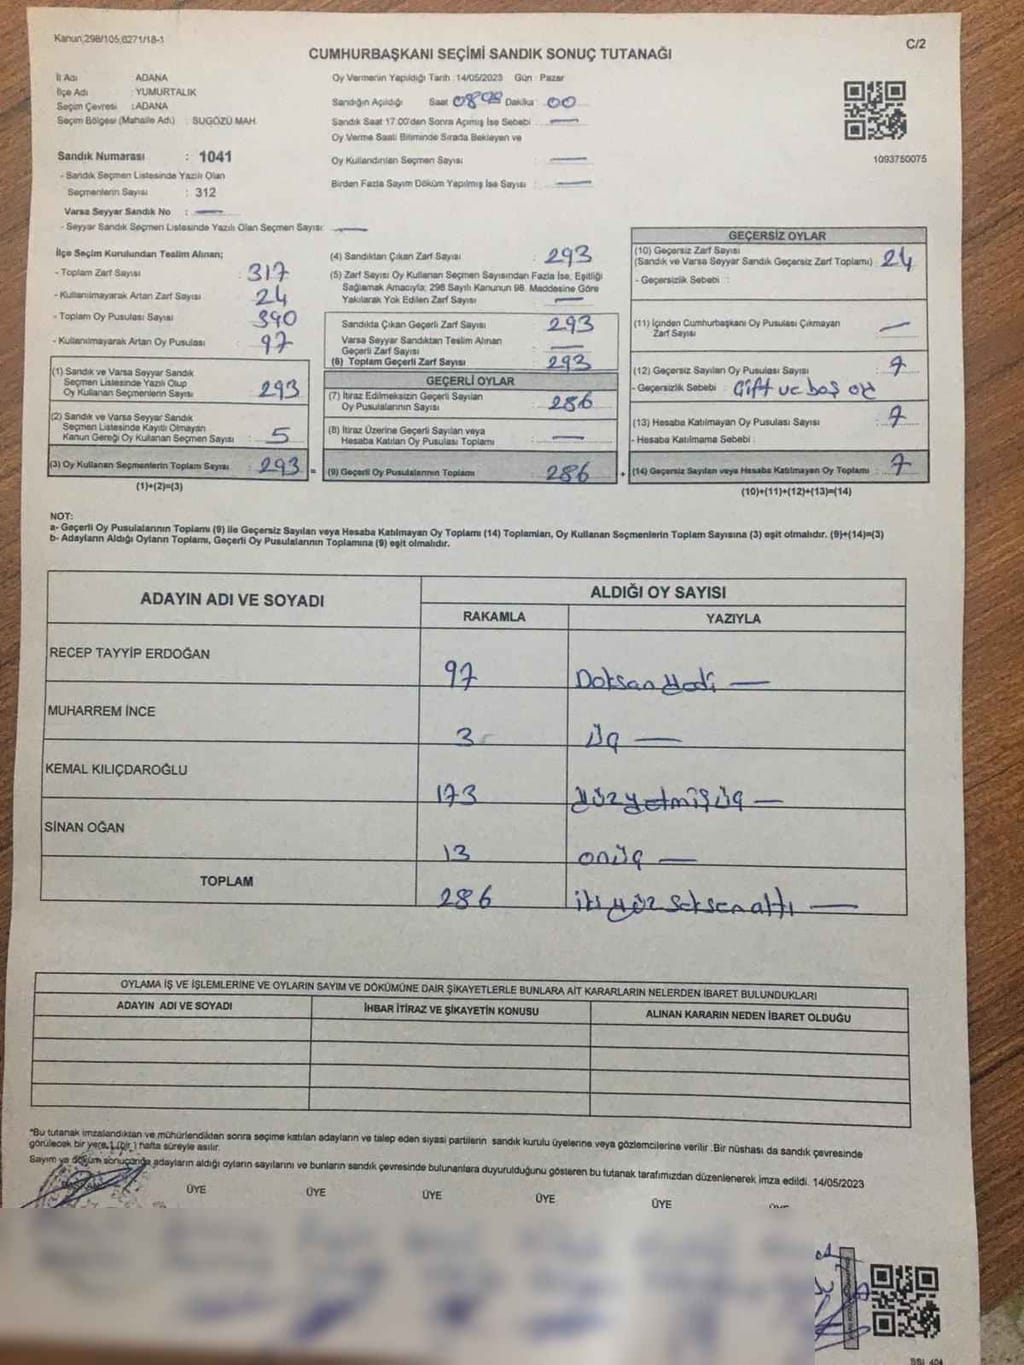 Kanun:298/105;6271/18-1
C/2
CUMHURBAŞKANI SEÇİMİ SANDIK SONUÇ TUTANAĞI
İl Adı ADANA
İlçe Adı : YUMURTALIK
Seçim Çevresi : ADANA
Seçim Bölgesi (Mahalle Adı) : SUGÖZÜ MAH.
Sandık Numarası : 1041
- Sandık Seçmen Listesinde Yazılı Olan
Seçmenlerin Sayısı : 312
Varsa Seyyar Sandık No : —
- Seyyar Sandık Seçmen Listesinde Yazılı Olan Seçmen Sayısı: —
Oy Vermenin Yapıldığı Tarih :14/05/2023 Gün : Pazar
Sandığın Açıldığı Saat Dakika : 00
Sandık Saat 17.00'den Sonra Açımış İse Sebebi : —
Oy Verme Saati Bitiminde Sırada Bekleyen ve
Oy Kullandırılan Seçmen Sayısı : —
Birden Fazla Sayım Döküm Yapılmış İse Sayısı : —
1093750075
İlçe Seçim Kurulundan Teslim Alınan;
- Toplam Zarf Sayısı : 317
- Kullanılmayarak Artan Zarf Sayısı : 24
- Toplam Oy Pusulası Sayısı : 390
- Kullanılmayarak Artan Oy Pusulası : 97
(1) Sandık ve Varsa Seyyar Sandık
Seçmen Listesinde Yazılı Olup
Oy Kullanan Seçmenlerin Sayısı : 293
(2) Sandık ve Varsa Seyyar Sandık
Seçmen Listesinde Kayıtlı Olmayan
Kanun Gereği Oy Kullanan Seçmen Sayısı : 5
(3) Oy Kullanan Seçmenlerin Toplam Sayısı : 293 =
(1)+(2)=(3)
(4) Sandıktan Çıkan Zarf Sayısı : 293
(5) Zarf Sayısı Oy Kullanan Seçmen Sayısından Fazla İse, Eşitliği
Sağlamak Amacıyla; 298 Sayılı Kanunun 98. Maddesine Göre
Yakılarak Yok Edilen Zarf Sayısı : —
Sandıkta Çıkan Geçerli Zarf Sayısı : 293
Varsa Seyyar Sandıktan Teslim Alınan
Geçerli Zarf Sayısı : —
(6) Toplam Geçerli Zarf Sayısı : 293
GEÇERLİ OYLAR
(7) İtiraz Edilmeksizin Geçerli Sayılan
Oy Pusulalarının Sayısı : 286
(8) İtiraz Üzerine Geçerli Sayılan veya
Hesaba Katılan Oy Pusulası Toplamı : —
(9) Geçerli Oy Pusulalarının Toplamı : 286 +
GEÇERSİZ OYLAR
(10) Geçersiz Zarf Sayısı
(Sandık ve Varsa Seyyar Sandık Geçersiz Zarf Toplamı) : 24
- Geçersizlik Sebebi :
(11) İçinden Cumhurbaşkanı Oy Pusulası Çıkmayan
Zarf Sayısı : —
(12) Geçersiz Sayılan Oy Pusulası Sayısı : 7
- Geçersizlik Sebebi : Çift ve boş oy
(13) Hesaba Katılmayan Oy Pusulası Sayısı : 7
- Hesaba Katılmama Sebebi :
(14) Geçersiz Sayılan veya Hesaba Katılmayan Oy Toplamı : 7
(10)+(11)+(12)+(13)=(14)
NOT:
a- Geçerli Oy Pusulalarının Toplamı (9) ile Geçersiz Sayılan veya Hesaba Katılmayan Oy Toplamı (14) Toplamları, Oy Kullanan Seçmenlerin Toplam Sayısına (3) eşit olmalıdır. (9)+(14)=(3)
b- Adayların Aldığı Oyların Toplamı, Geçerli Oy Pusulalarının Toplamına (9) eşit olmalıdır.
ADAYIN ADI VE SOYADI
ALDIĞI OY SAYISI
RAKAMLA YAZIYLA
RECEP TAYYİP ERDOĞAN 97 Doksan Yedi —
MUHARREM İNCE 3 Üç —
KEMAL KILIÇDAROĞLU 173 Yüzyetmişüç —
SİNAN OĞAN 13 onüç —
TOPLAM 286 iki yüz seksen altı —
OYLAMA İŞ VE İŞLEMLERİNE VE OYLARIN SAYIM VE DÖKÜMÜNE DAİR ŞİKAYETLERLE BUNLARA AİT KARARLARIN NELERDEN İBARET BULUNDUKLARI
ADAYIN ADI VE SOYADI İHBAR İTİRAZ VE ŞİKAYETİN KONUSU ALINAN KARARIN NEDEN İBARET OLDUĞU
"Bu tutanak imzalandıktan ve mühürlendikten sonra seçime katılan adayların ve talep eden siyasi partilerin sandık kurulu üyelerine veya gözlemcilerine verilir. Bir nüshası da sandık çevresinde
görülecek bir yere 1 (bir) hafta süreyle asılır.
Sayım ve döküm sonucunda adayların aldığı oyların sayılarını ve bunların sandık çevresinde bulunanlara duyurulduğunu gösteren bu tutanak tarafımızdan düzenlenerek imza edildi. 14/05/2023
ÜYE ÜYE ÜYE ÜYE ÜYE